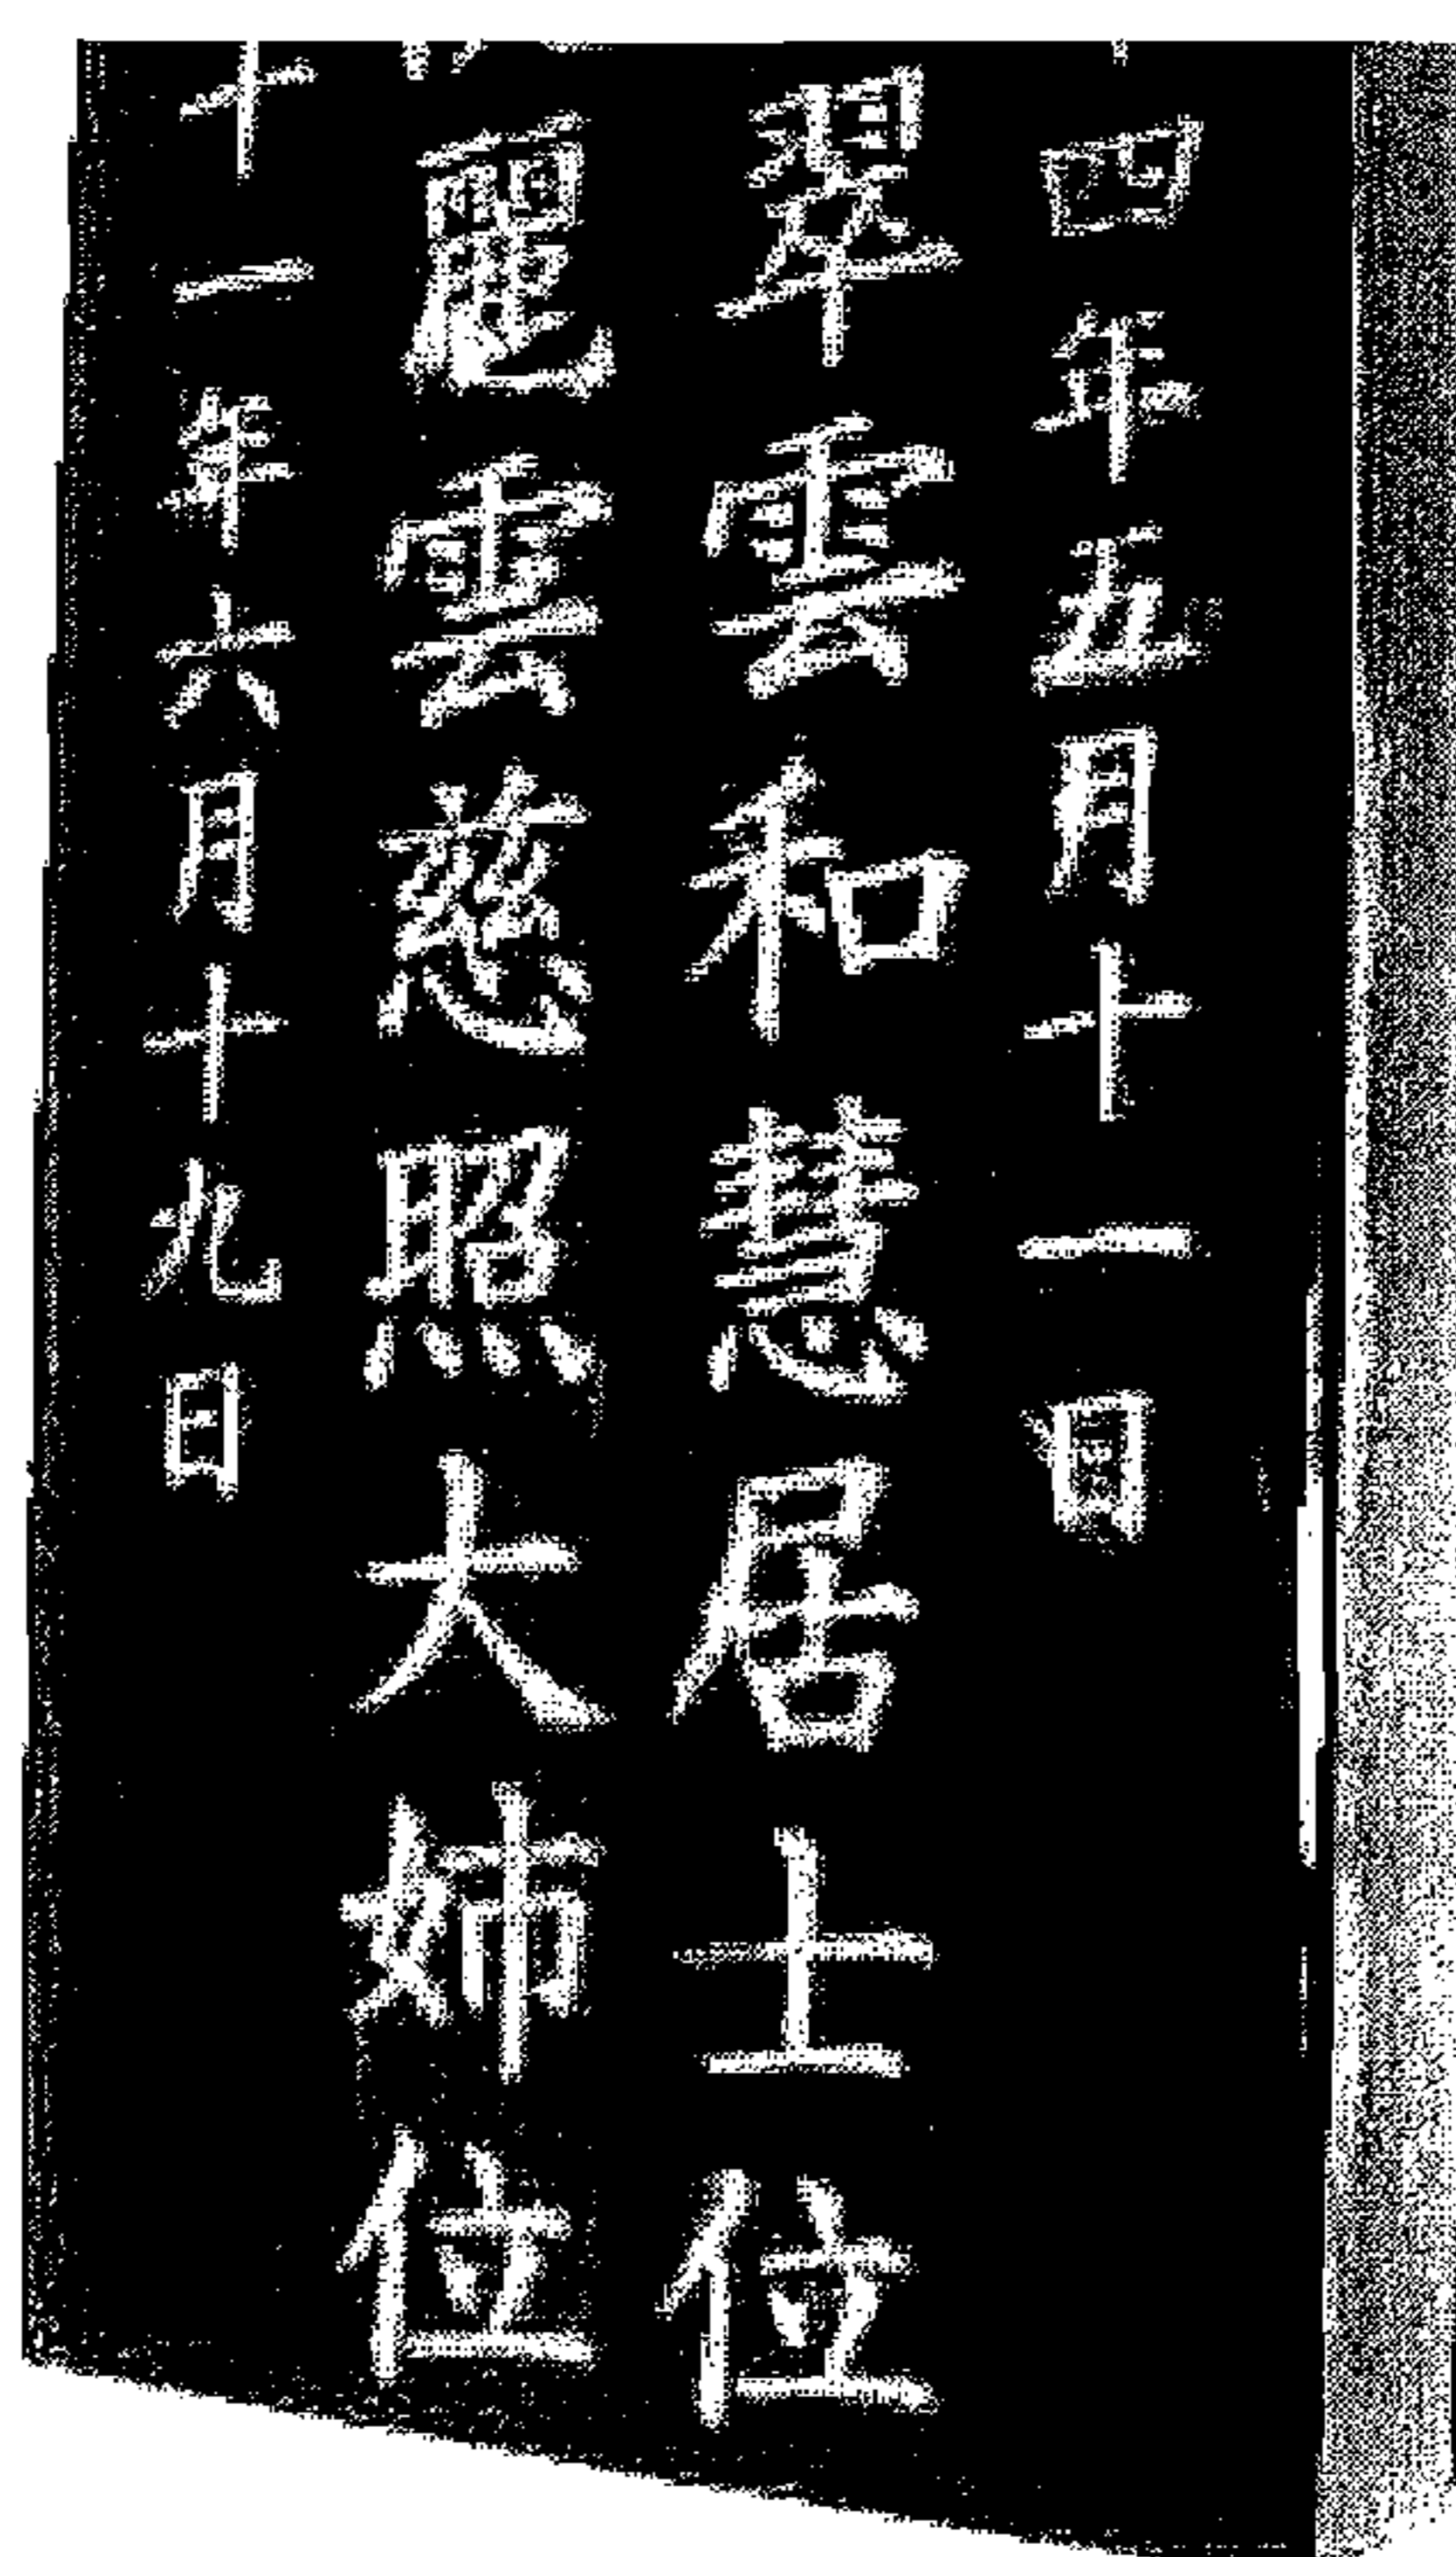 四年五月十一日
翠雲和慧居士位
麗雲慈照大姉位
十一年六月十九日